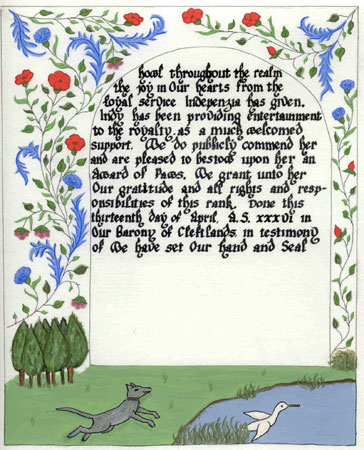 howl throughout the realm
the joy in Our hearts from the
loyal service Indepenzia has given.
Indy has been providing entertainment
to the royalty as a much welcomed
support. We do publicly commend her
and are pleased to bestow upon her an
Award of Paws. We grant unto her
Our gratitude and all rights and resp-
onsibilities of this rank. Done this
thirteenth day of April, A.S. xxxvi in
Our Barony of Cleftlands, in testimony
of We have set Our hand and Seal